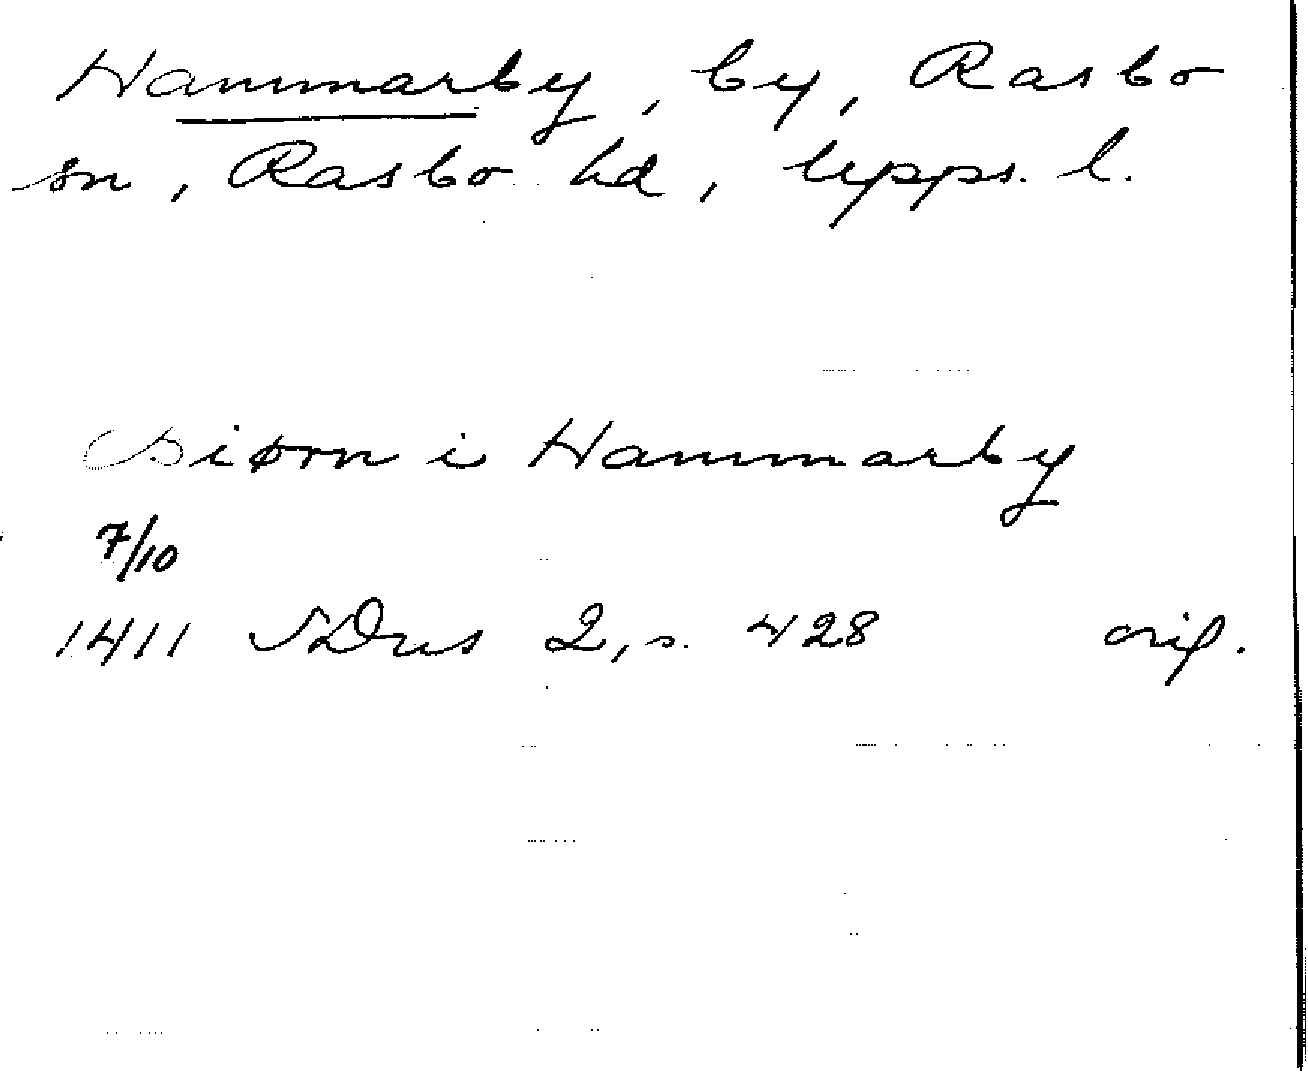 Hammarby, by, Rasbo
sn, Rasbo hd, Upps. l.
Biørn i Hammarby
7/10
1411 SDns 2, s. 428 orig.